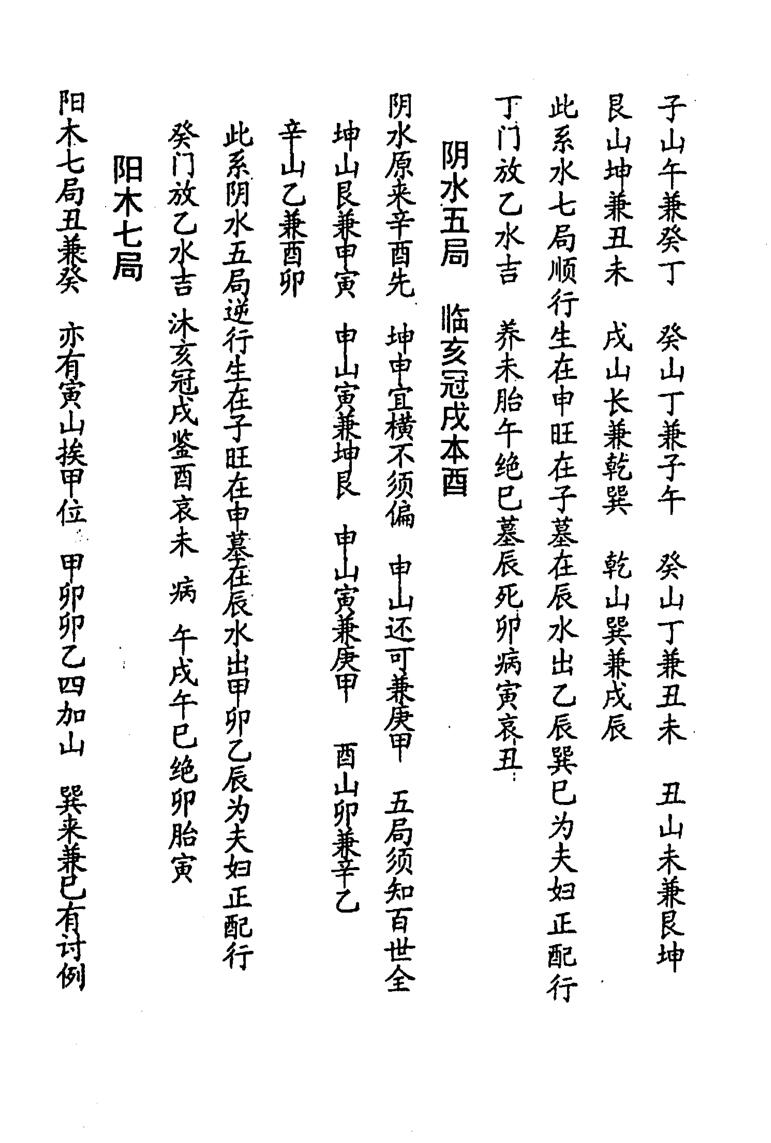 子山午兼癸丁　癸山丁兼子午　癸山丁兼丑未　丑山未兼艮坤
艮山坤兼丑未　戌山长兼乾巽　乾山巽兼戌辰
此系水七局顺行生在申旺在子墓在辰水出乙辰巽巳为夫妇正配行
丁门放乙水吉　养未胎午绝巳墓辰死卯病寅哀丑
阴水五局　临亥冠戌本酉
阴水原来辛酉先　坤申宜横不须偏　申山还可兼庚甲　五局须知百世全
坤山艮兼申寅　申山寅兼坤艮　申山寅兼庚甲　酉山卯兼辛乙
辛山乙兼酉卯
此系阴水五局逆行生在子旺在申墓在辰水出甲卯乙辰为夫妇正配行
癸门放乙水吉　沐亥冠戌鉴酉哀未　病　午戌午巳绝卯胎寅
阳木七局
阳木七局丑兼癸　亦有寅山挨甲位　甲卯卯乙四加山　巽来兼巳有讨例